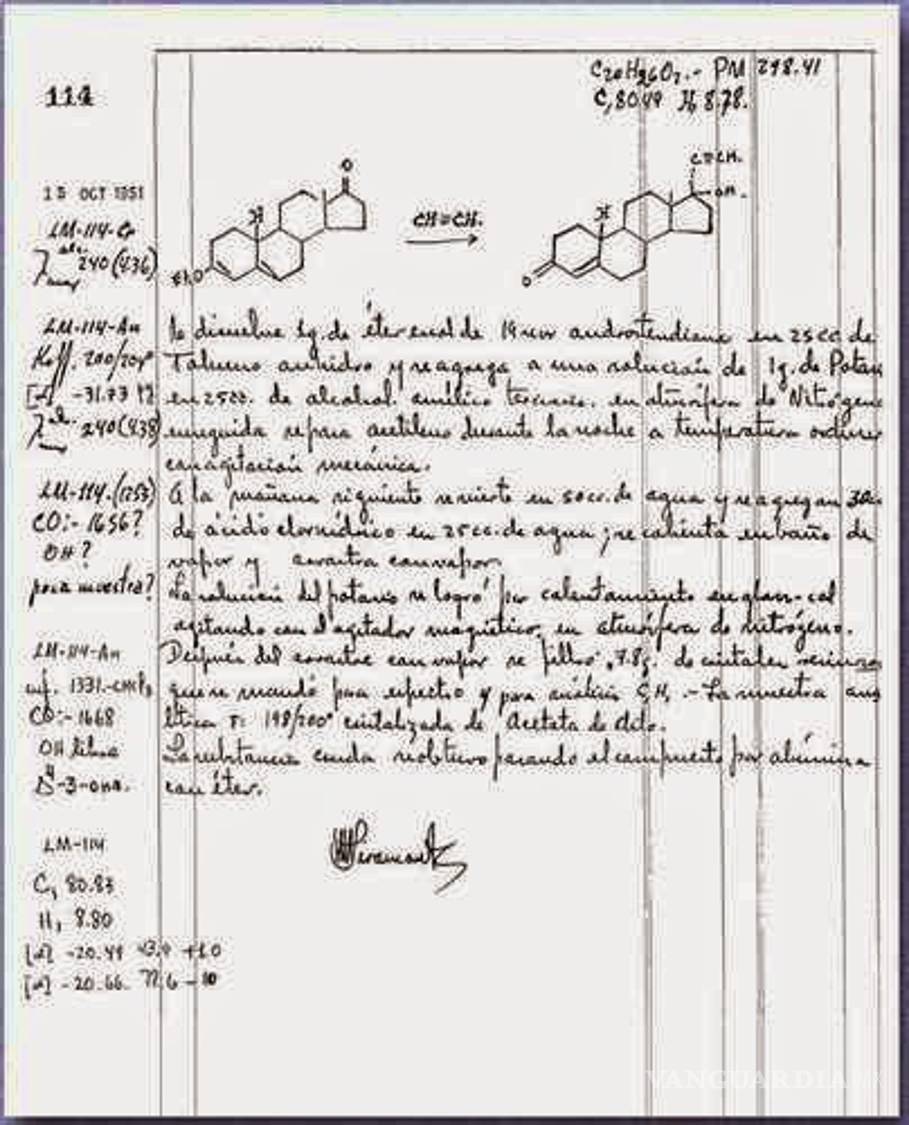 114
C20H26O2.- PM 298.41
C, 80.49 H, 8.78.
15 OCT 1951
C≡CH.
OH.
O
H
CH≡CH.
H
EtO
O
LM-114-Cr
λ alc. max 240 (4.36)
LM-114-An
Koff. 200/204°
[α] -31.73
λ alc. 240 (4.38)
LM-114. (1253)
CO:- 1656?
OH?
poca muestra?
LM-114-An
inf. 1331.-CHCl3
CO:- 1668
OH libre
Δ4-3-ona.
LM-114
C, 80.83
H, 8.80
[α] -20.49 43.9 +1.0
[α] -20.66. 77.6 -10
Se disuelve 1g. de éter enol de 19 nor androstendiona en 25 cc de
Tolueno anhidro y se agrega a una solución de 1g. de Potasi
en 25cc. de alcohol amílico terciario. en atmósfera de Nitrógeno
enseguida se pasa acetileno durante la noche a temperatura ordinar
con agitación mecánica.
A la mañana siguiente se vierte en 50cc. de agua y se agregan 30cc
de ácido clorhídrico en 25cc. de agua; se calienta en baño de
vapor y se arrastra con vapor.
La solución del potasio se logró por calentamiento en glas-col
agitando con el agitador magnético, en atmósfera de nitrógeno.
Después del arrastre con vapor se filtró, 7.8g. de cristales
que se mandó para espectro y para análisis C,H, .- La muestra ana
lítica F: 198/200° cristalizada de Acetato de etilo.
La substancia cruda se obtuvo pasando el compuesto por alúmina
con éter.
VANGUARDIA